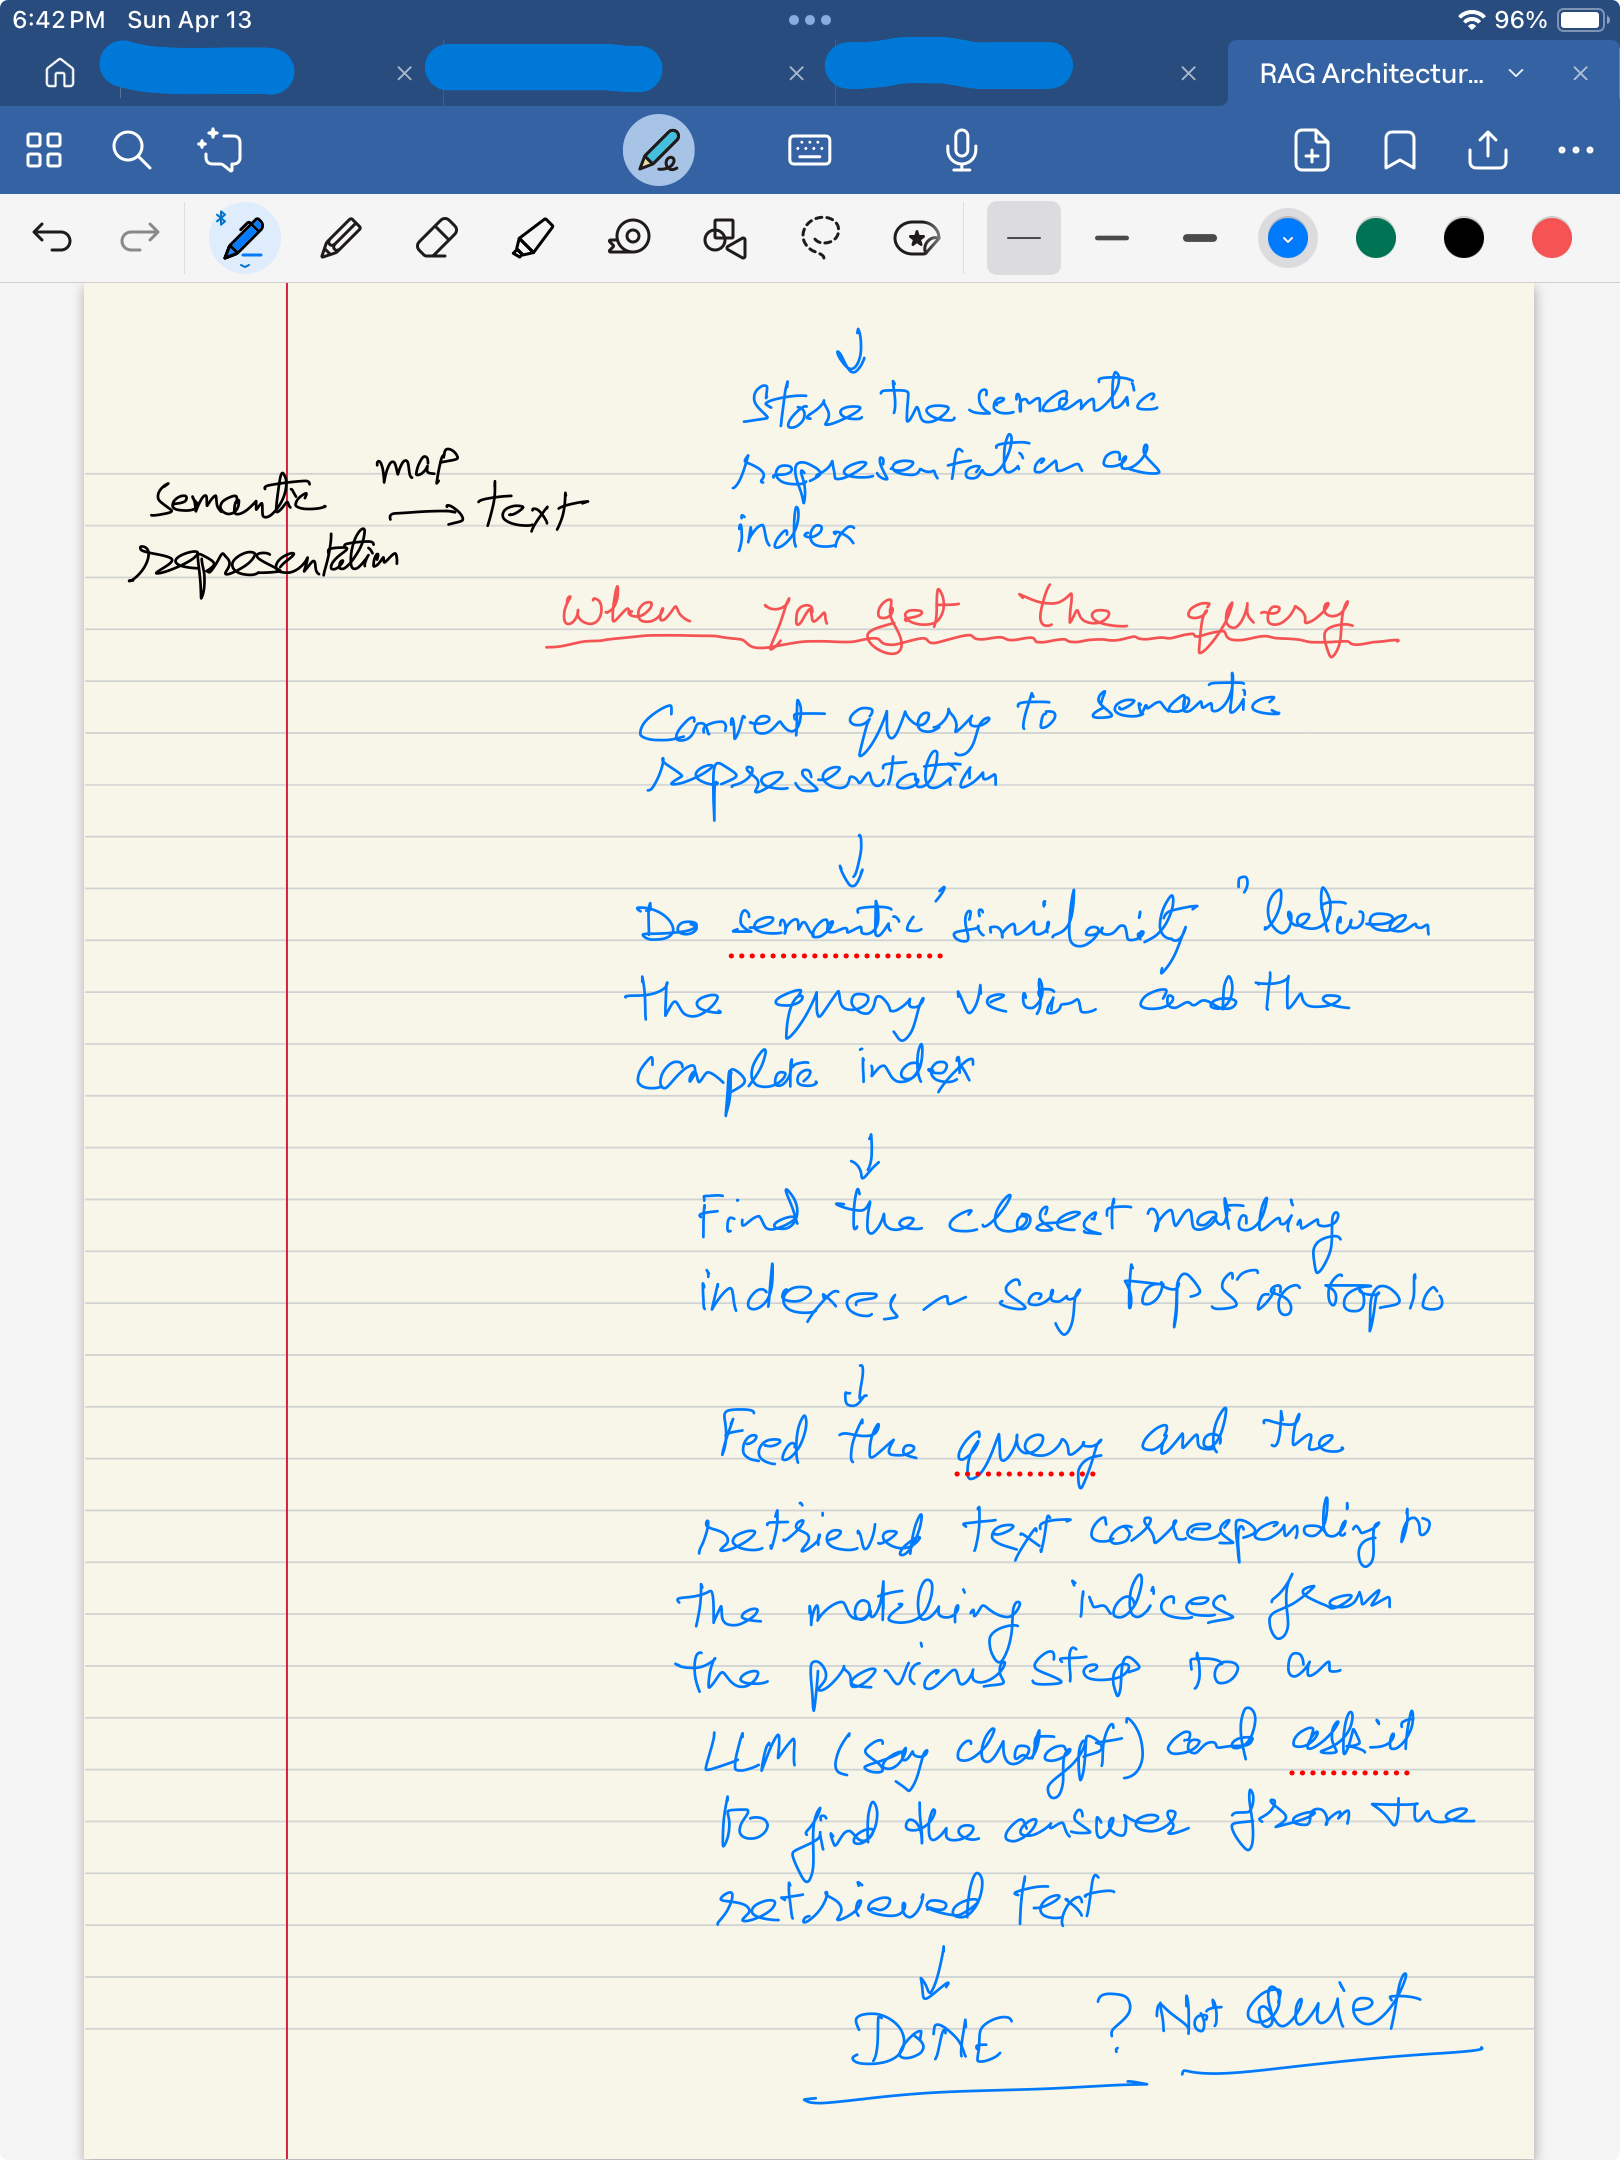 6:42 PM Sun Apr 13
96%
RAG Architectur...
↓
Store the semantic
representation as
index
map
semantic → text
representation
when you get the query
Convert query to semantic
representation
↓
Do semantic "similarity" between
the query vector and the
complete index
↓
Find the closest matching
indexes ~ say top 5 or top 10
↓
Feed the query and the
retrieved text corresponding to
the matching indices from
the previous step to an
LLM (say chatgpt) and ask it
to find the answer from the
retrieved text
↓
DONE ? Not Quiet